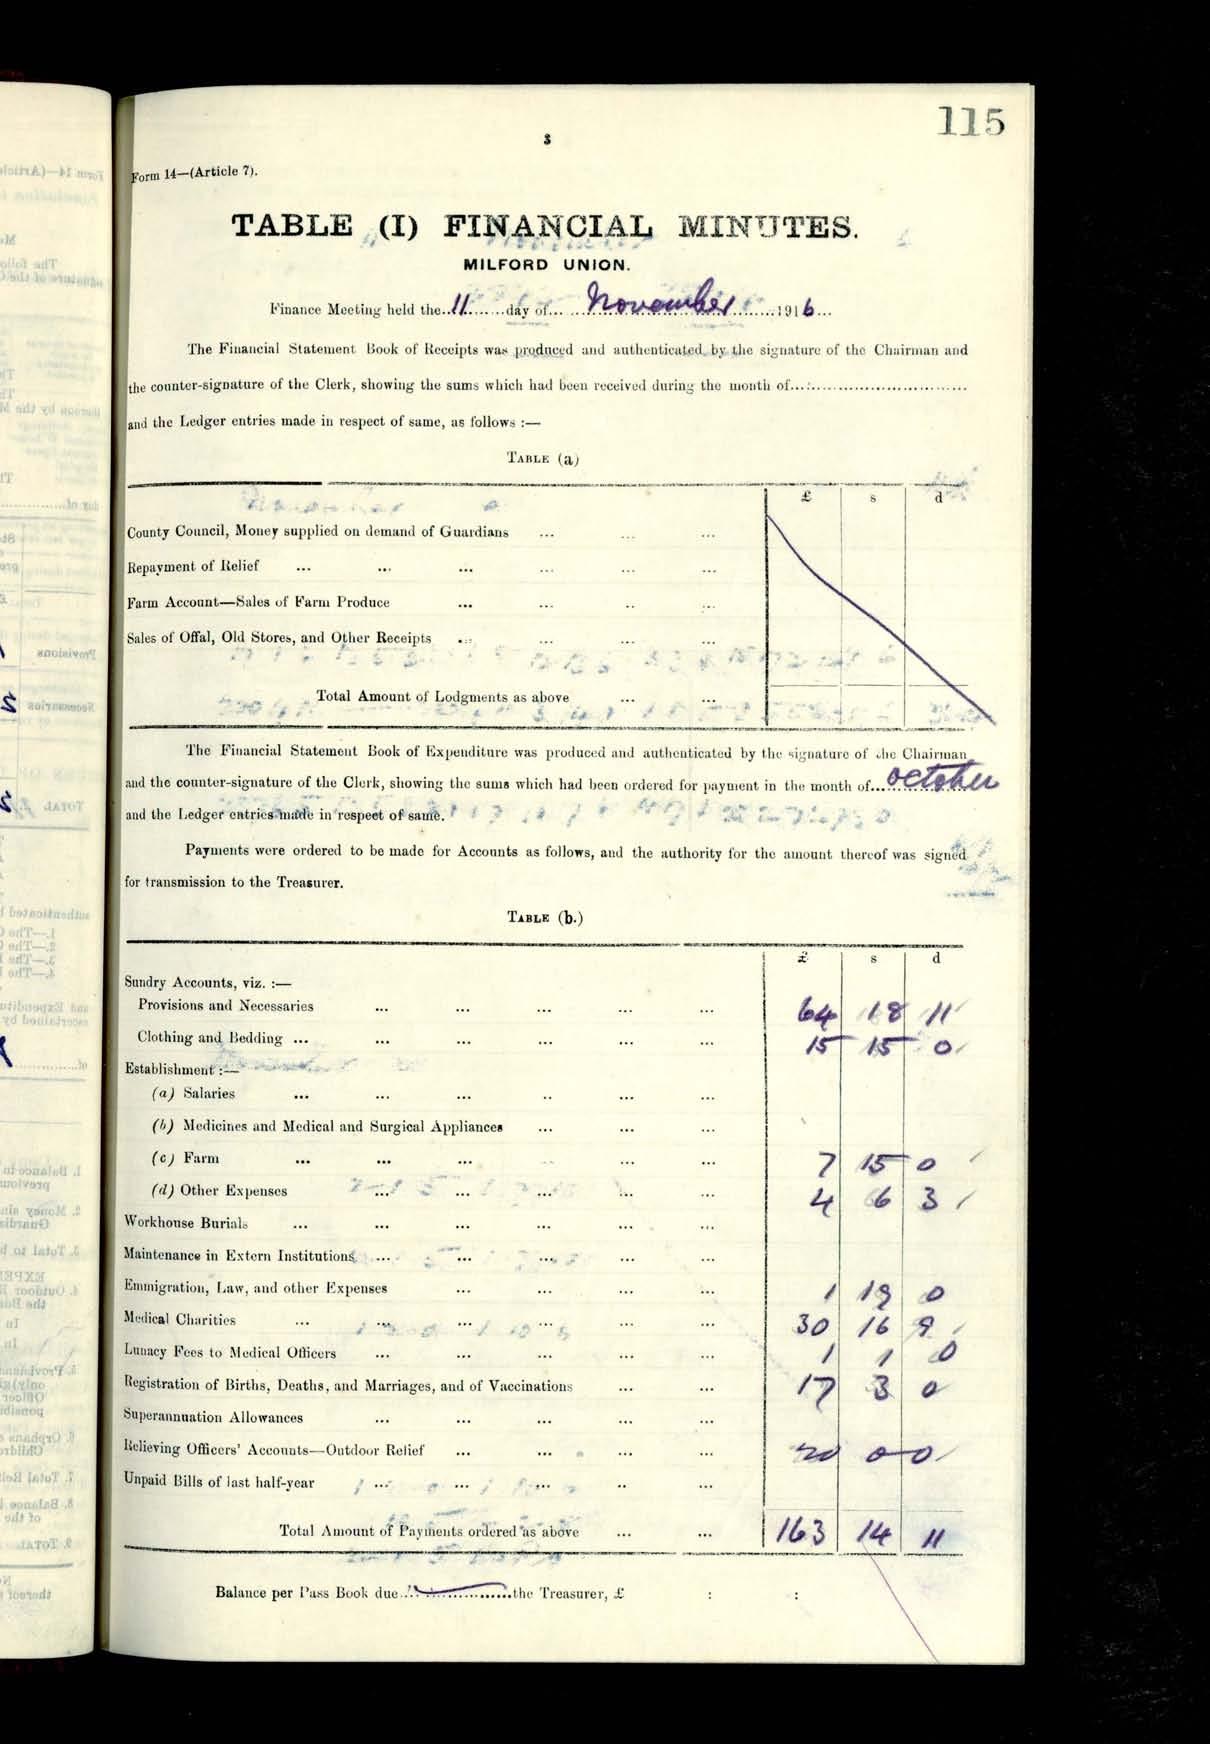 115
3
Form 14—(Article 7).
TABLE (I) FINANCIAL MINUTES.
MILFORD UNION.
Finance Meeting held the 11 day of November 1916
The Financial Statement Book of Receipts was produced and authenticated by the signature of the Chairman and
the counter-signature of the Clerk, showing the sums which had been received during the month of
and the Ledger entries made in respect of same, as follows :—
TABLE (a)
£ s d
County Council, Money supplied on demand of Guardians ... ... ...
Repayment of Relief ... ... ... ... ... ...
Farm Account—Sales of Farm Produce ... ... ... ...
Sales of Offal, Old Stores, and Other Receipts ... ... ... ...
Total Amount of Lodgments as above ... ...
The Financial Statement Book of Expenditure was produced and authenticated by the signature of the Chairman
and the counter-signature of the Clerk, showing the sums which had been ordered for payment in the month of October
and the Ledger entries made in respect of same.
Payments were ordered to be made for Accounts as follows, and the authority for the amount thereof was signed
for transmission to the Treasurer.
TABLE (b.)
£ s d
Sundry Accounts, viz. :—
Provisions and Necessaries ... ... ... ... ... 64 18 11
Clothing and Bedding ... ... ... ... ... ... 15 15 0
Establishment :—
(a) Salaries ... ... ... ... ... ...
(b) Medicines and Medical and Surgical Appliances ... ... ...
(c) Farm ... ... ... ... ... ... 7 15 0
(d) Other Expenses ... ... ... ... ... 4 6 3
Workhouse Burials ... ... ... ... ... ...
Maintenance in Extern Institutions ... ... ... ... ...
Emmigration, Law, and other Expenses ... ... ... ... 1 19 0
Medical Charities ... ... ... ... ... ... 30 16 9
Lunacy Fees to Medical Officers ... ... ... ... ... 1 1 0
Registration of Births, Deaths, and Marriages, and of Vaccinations ... ... 17 3 0
Superannuation Allowances ... ... ... ... ...
Relieving Officers' Accounts—Outdoor Relief ... ... ... ... 20 0 0
Unpaid Bills of last half-year ... ... ... ... ...
Total Amount of Payments ordered as above ... ... 163 14 11
Balance per Pass Book due the Treasurer, £ : :